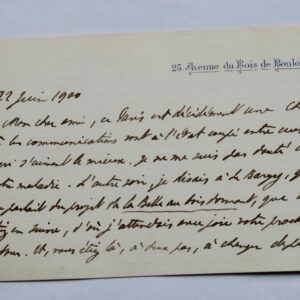 25. Avenue du Bois de Boulo
22 Juin 1900
Mon cher ami, ce Paris est décidément une
les communications sont à l'état
s'aiment le mieux. Je ne me suis pas douté
maladie. L'autre soir, je disais à la
parlait du projet de La Belle au bois dormant, que
en suivre, d'où j'attendrais avec joie votre
Et, vous étiez là, à deux pas, à